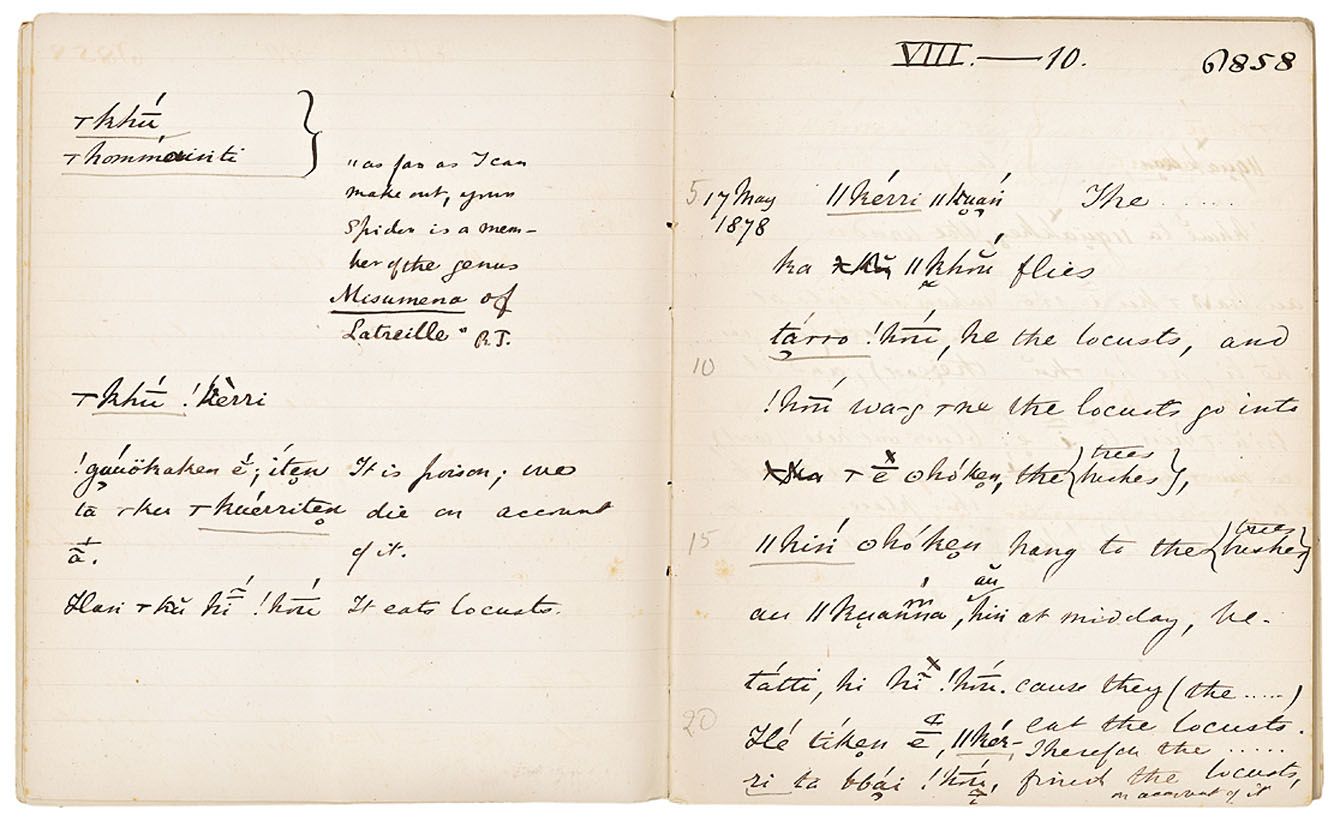 ⊤khū́
⊤hommáiniti
"as far as I can
make out, your
Spider is a mem-
ber of the genus
Misumena of
Latreille" R.T.
⊤khū́ !kèrri
!gáuökaken é; íten It is poison; we
tā ⊤ker ⊤kúerriten die on account
ā. of it.
Han ⊤kŭ hī́ !hóu It eats locusts.
VIII.—10. 6858
5 17 May
1878
||kérri ||kuáń The .....
ka ||khóu flies
tárro !hóu, he the locusts, and
10
!hóu wa-g ⊤ne the locusts go into
⊤ē ʘhóken, the {trees bushes},
15 ||hiń ʘhóken hang to the {trees bushes}
au ||kuáńna, au hin at midday, be-
tátti, hi hī !hóu. cause they (the .....)
eat the locusts.
20 Hé tíken ē, ||kér- Therefore the .....
ri ta bbái !hóu, find the locusts,
on account of it